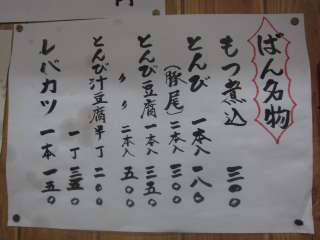 ばん名物
もつ煮込 三〇〇
とんび 一本入 一八〇
(豚尾) 二本入 三〇〇
とんび豆腐 一本入 三五〇
〃 〃 二本入 五〇〇
とんび汁豆腐半丁 二〇〇
一丁 三五〇
レバカツ 一本 一五〇
円